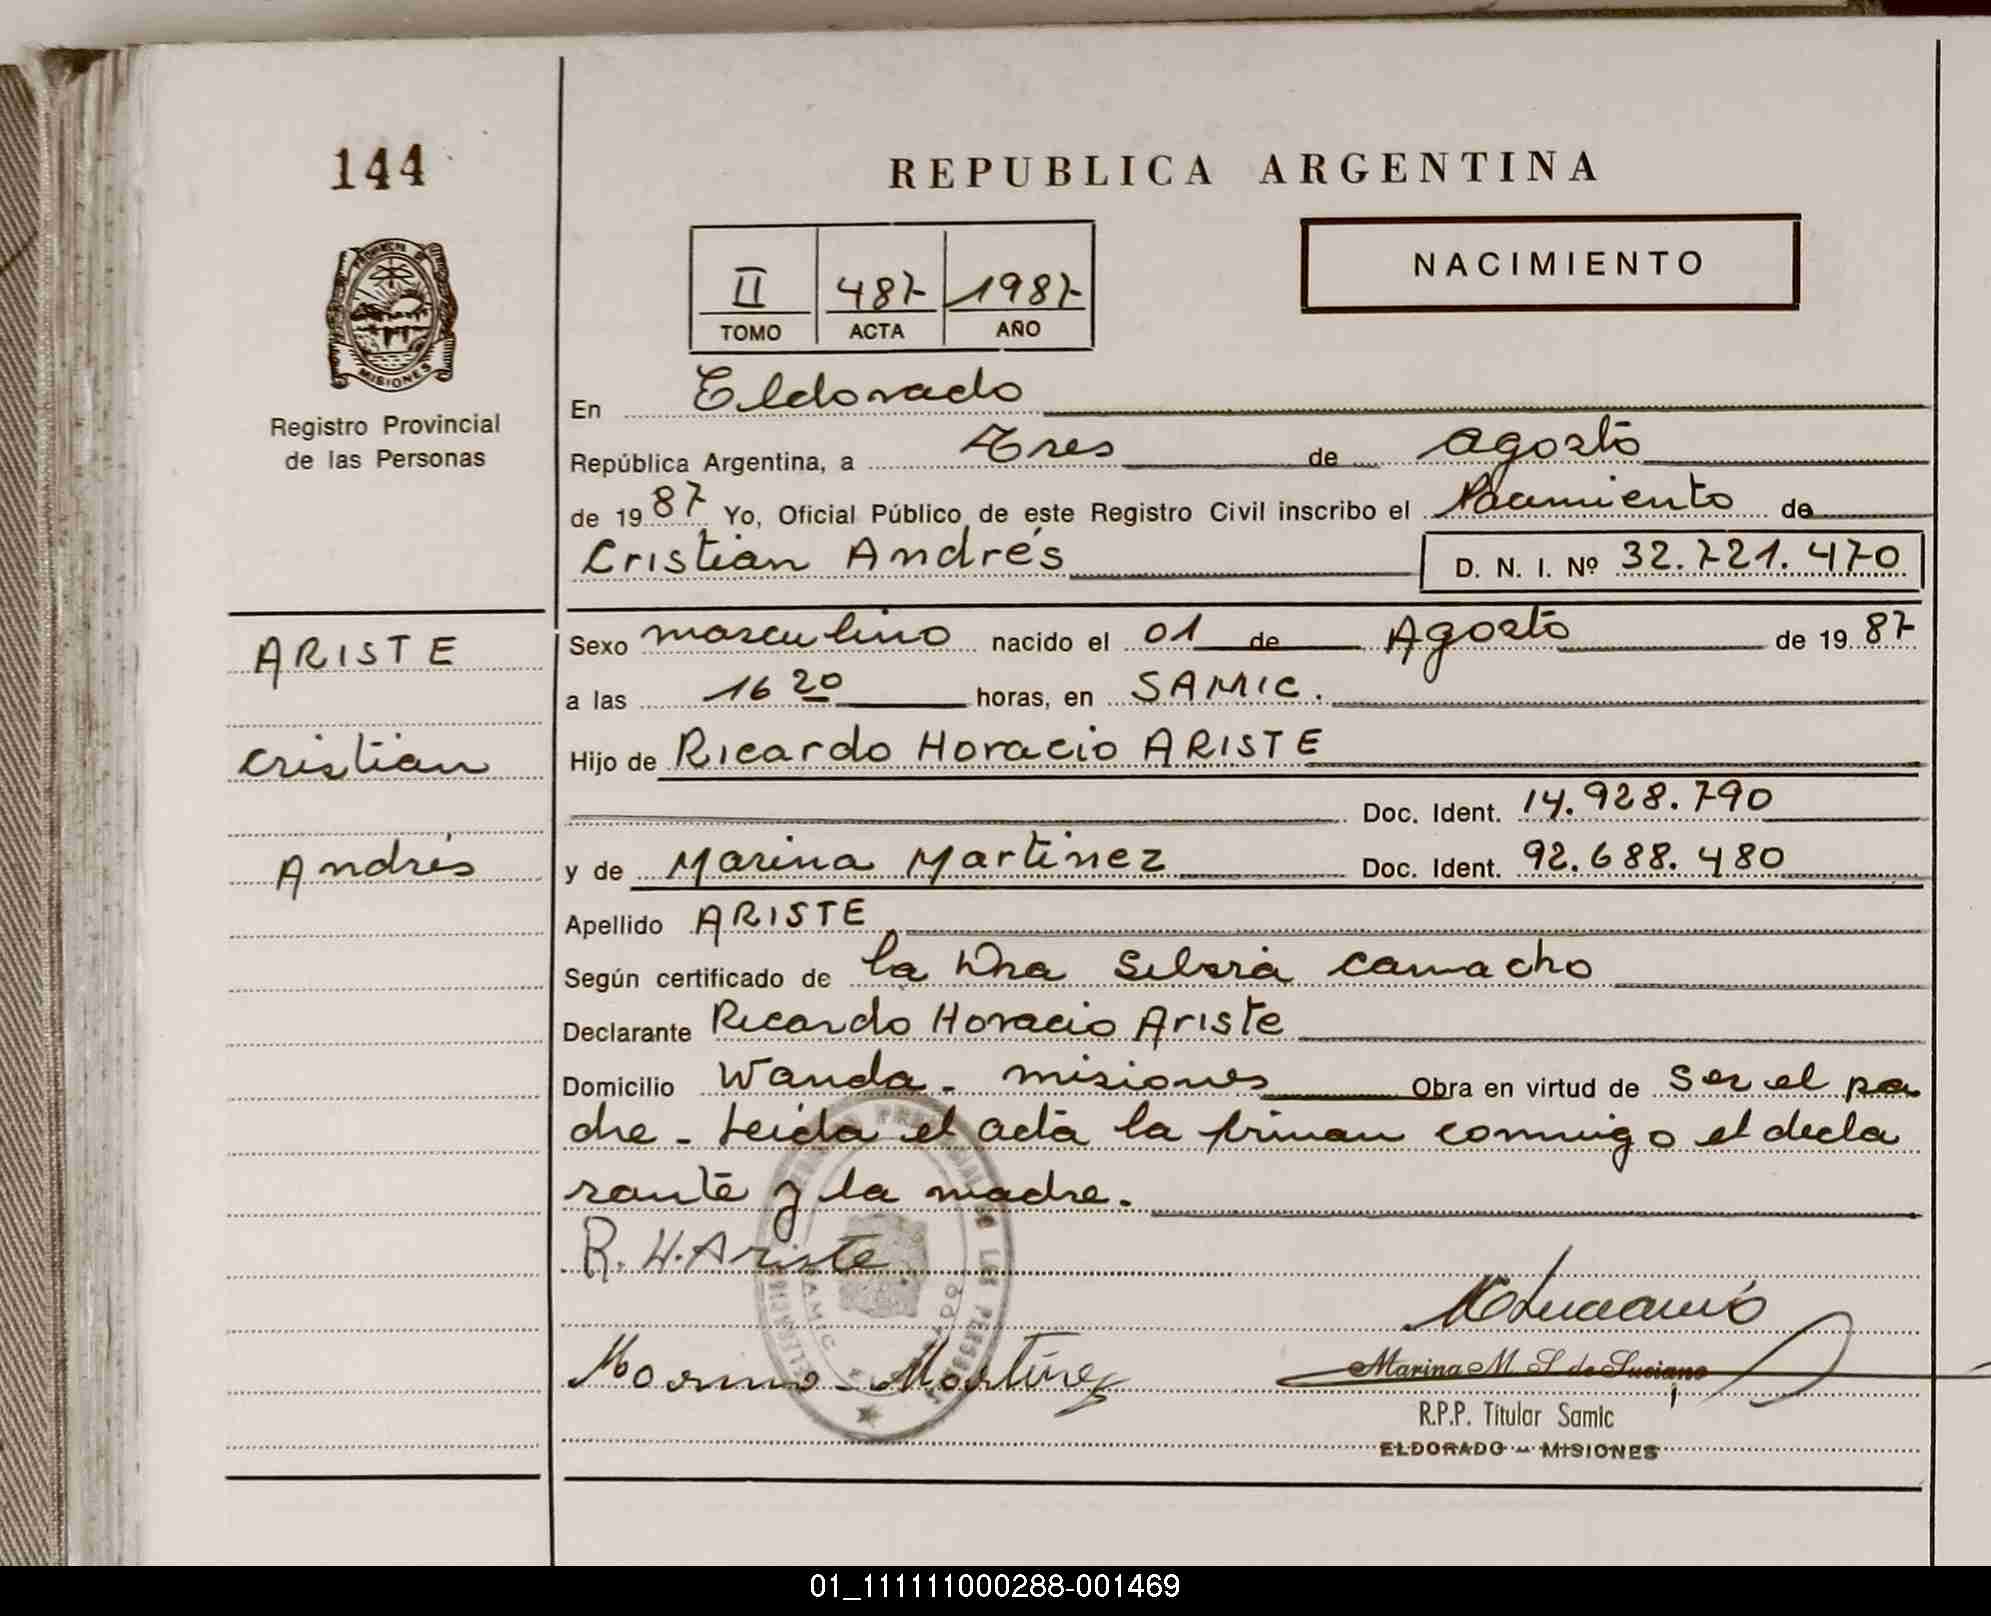 144
REPUBLICA ARGENTINA
NACIMIENTO
II 487 1987
TOMO ACTA AÑO
PROVINCIA DE
MISIONES
Registro Provincial
de las Personas
En Eldorado
República Argentina, a Tres de agosto
de 1987 Yo, Oficial Público de este Registro Civil inscribo el Nacimiento de
Cristian Andrés D. N. I. Nº 32.721.470
ARISTE
Cristian
Andrés
Sexo masculino nacido el 01 de Agosto de 1987
a las 16 20 horas, en SAMIC.
Hijo de Ricardo Horacio ARISTE
Doc. Ident. 14.928.790
y de Marina Martinez Doc. Ident. 92.688.480
Apellido ARISTE
Según certificado de la Dra Camacho
Declarante Ricardo Horacio Ariste
Domicilio Wanda - misiones Obra en virtud de ser el pa
dre - Leida el acta la firman conmigo el decla
rante y la madre.
R. H. Ariste
Martínez
Marina M. S. de Luciano
R.P.P. Titular Samic
ELDORADO - MISIONES
01_111111000288-001469